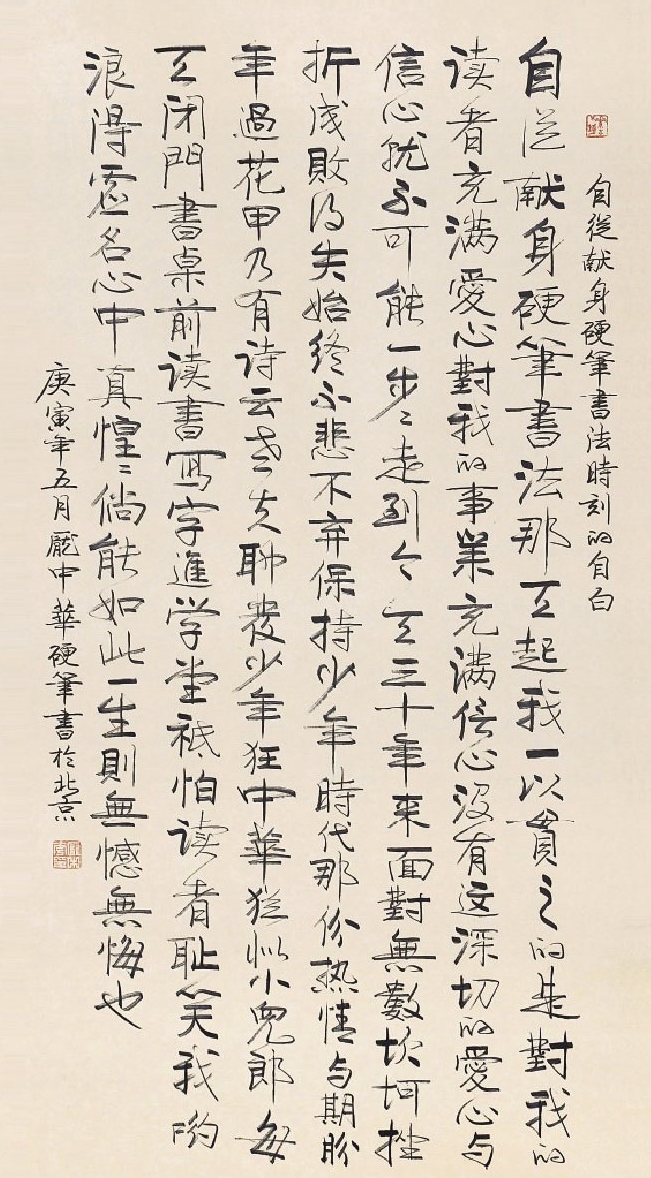 自從献身硬筆書法時刻的自白
自从献身硬筆書法那天起我一以貫之的是對我的
读者充满愛心對我的事業充满信心没有这深切的愛心与
信心就不可能一步々走到今天三十年来面對無數坎坷挫
折成敗得失始終不悲不弃保持少年時代那份热情与期盼
年過花甲乃有诗云老夫聊發少年狂中華猶似小兒郎每
天闭門書桌前读書写字進学堂祗怕读者耻笑我哟
浪得虚名心中真惶々倘能如此一生則無憾無悔也
庚寅年五月龐中華硬筆書於北京